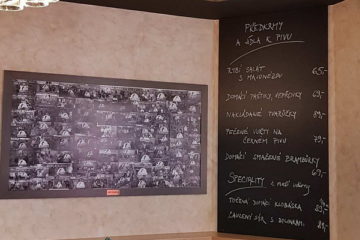 PŘEDKRMY
A JÍDLA K PIVU
RYBÍ SALÁT
S MAJONÉZOU 65,-
DOMÁCÍ PAŠTIKY, 69,-
NAKLÁDANÉ TVARŮŽKY 89,-
PEČENÉ VUŘTY NA
ČERNÉM PIVU 79,-
DOMÁCÍ SMAŽENÉ BRAMBŮRKY
69,-
SPECIALITY Z NAŠÍ UDÍRNY
TOČENÁ DOMÁCÍ KLOBÁSKA 89,-
89,-